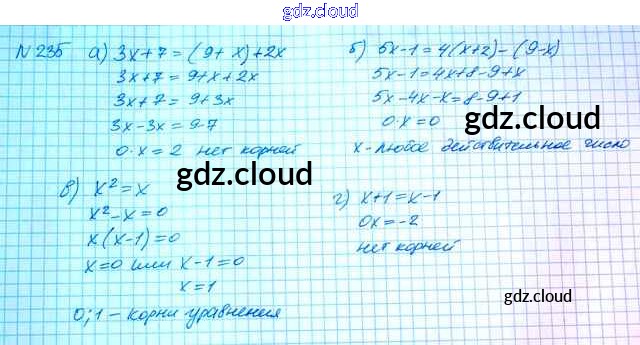 gdz.cloud
№ 235 а) 3x+7 = (9+x)+2x
3x+7 = 9+x+2x
3x+7 = 9+3x
3x-3x = 9-7
0·x = 2 нет корней
б) 5x-1 = 4(x+2)-(9-x)
5x-1 = 4x+8-9+x
5x-4x-x = 8-9+1
0·x = 0
x - любое действительное число
gdz.cloud
gdz.cloud
в) x² = x
x²-x = 0
x(x-1) = 0
x = 0 или x-1 = 0
x = 1
0; 1 - корни уравнения
г) x+1 = x-1
0x = -2
нет корней
gdz.cloud